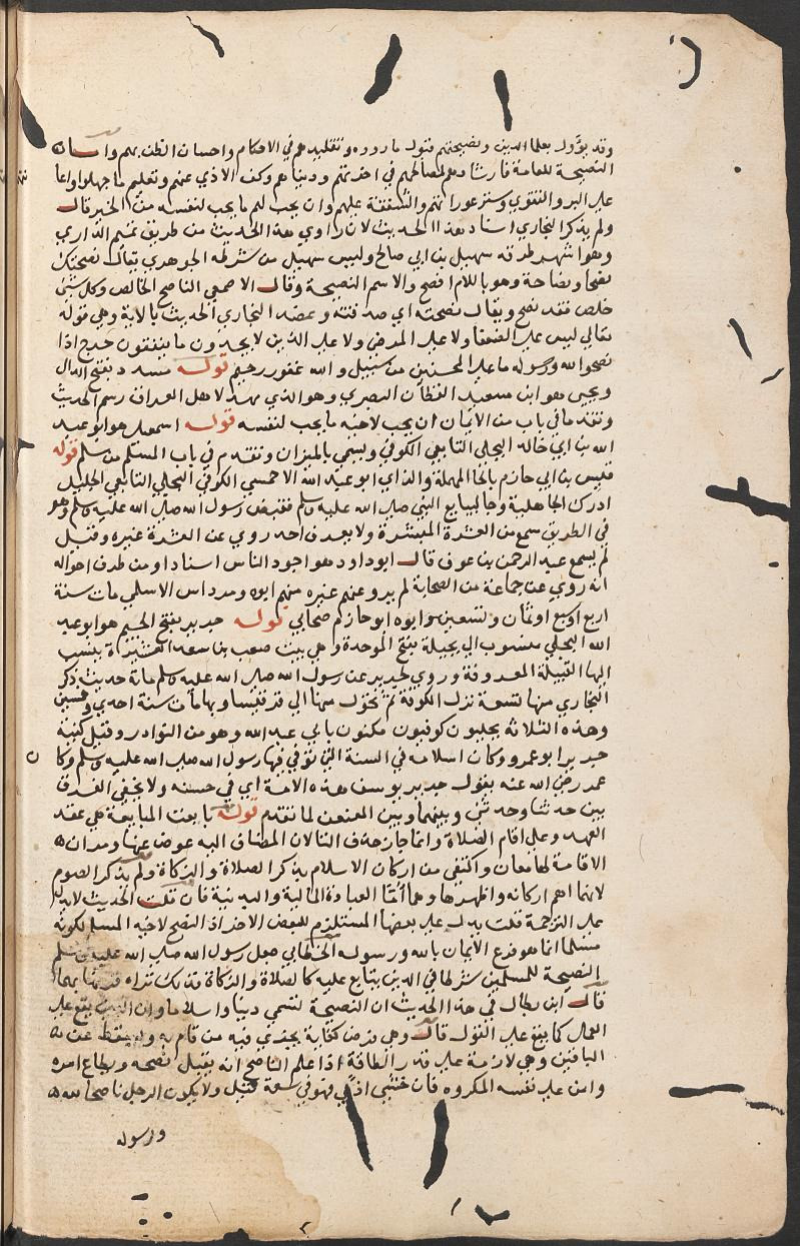 وقد يؤول بعلما الدين ونصيحتهم قبول ما رووه وتقليدهم في الاحكام واحسان الظن بهم واما
النصيحة للعامة فارشادهم لمصالحهم في اخرتهم ودنياهم وكف الاذي عنهم وتعليم ما جهلوا واعا
علي البر والتقوي وستر عوراتهم والشفقة عليهم وان يحب لهم ما يحب لنفسه من الخير قال
ولم يذكر البخاري اسناد هذا الحديث لان راوي هذا الحديث من طريق تميم الداري
وهو اشهر طرقه سهيل بن ابي صالح وليس سهيل من شرطه الجوهري يقال نصحتك
نصحا ونصاحة وهو باللام افصح والاسم النصيحة وقال الاصمعي الناصح الخالص وكل شئ
خلص فقد نصح ويقال نصحته اي صدقته وعضد البخاري الحديث بالاية وهي قوله
تعالي ليس علي الضعفا ولا علي المرضي ولا علي الذين لا يجدون ما ينفقون حرج اذا
نصحوا لله ورسوله ما علي المحسنين من سبيل والله غفور رحيم قوله مسدد بفتح الدال
ويحيي هو ابن سعيد القطان البصري وهو الذي مهد لاهل العراق رسم الحديث
وتقدما في باب من الايمان ان يحب لاخيه ما يحب لنفسه قوله اسمعيل هو ابو عبد
الله بن ابي خالد البجلي التابعي الكوفي ويسمي بالميزان وتقدم في باب المسلم من سلم قوله
قيس بن ابي حازم بالحا المهملة والزاي ابو عبد الله الاحمسي الكوفي البجلي التابعي الجليل
ادرك الجاهلية وجا ليبايع النبي صلي الله عليه وسلم فقبض رسول الله صلي الله عليه وسلم وهو
في الطريق سمع من العشرة المبشرة ولا يعرف احد روي عن العشرة غيره وقيل
لم يسمع عبد الرحمن بن عوف قال ابو داود هو اجود الناس اسنادا ومن طرف احواله
انه روي عن جماعة من الصحابة لم يرو عنهم غيره منهم ابوه ومرداس الاسلمي مات سنة
اربع او سبع او ثمان وتسعين وابوه ابو حازم صحابي قوله جرير بفتح الجيم هو ابو عبد
الله البجلي منسوب الي بجيلة بفتح الموحدة وهي بنت صعب بن سعد العشيرة ينسب
اليها القبيلة المعروفة وروي لجرير عن رسول الله صلي الله عليه وسلم ماية حديث ذكر
البخاري منها تسعة نزل الكوفة ثم تحول منها الي قرقيسا وبها مات سنة احدي وخمسين
وهذه الثلاثة بجليون كوفيون مكنون بابي عبد الله وهو من النوادر وقيل كنية
جرير ابو عمرو وكان اسلامه في السنة التي توفي فيها رسول الله صلي الله عليه وسلم وكان
عمر رضي الله عنه يقول جرير يوسف هذه الامة اي في حسنه ولا يخفي الفرق
بين حدثنا وحدثني وبينهما وبين المعنعن لما تقدم قوله بايعت المبايعة هي عقد
العهد وعلي اقام الصلاة وانما جاز حذف التا لان المضاف اليه عوض عنها ومر ان
الاقامة لها معان واكتفي من اركان الاسلام بذكر الصلاة والزكاة ولم يذكر الصوم
لانهما اهم اركانه واظهرها وهما اما العبادة المالية والبدنية فان قلت الحديث لا يدل
علي الترجمة قلت يدل علي بعضها المستلزم للبعض الاخر اذ النصح لاخيه المسلم لكونه
مسلما انما هو فرع الايمان بالله ورسوله الخطابي جعل رسول الله صلي الله عليه وسلم
النصيحة للمسلمين شرطا في الدين يبايع عليه كالصلاة والزكاة فذلك تراه قرنها بهما
قال ابن بطال في هذا الحديث ان النصيحة تسمي دينا واسلاما وان الدين يقع علي
العمل كما يقع علي القول قال وهي فرض كفاية يجزي فيه من قام به ويسقط عن
الباقين وهي لازمة علي قدر الطاقة اذا علم الناصح انه يقبل نصحه ويطاع امره
وامن علي نفسه المكروه فان خشي اذي فهو في سعة قيل ولا يكون الرجل ناصحا لله
ورسوله